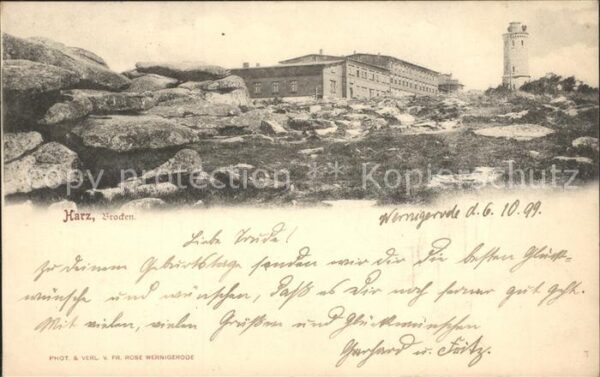 Copy protection * Kopierschutz
Harz, Brocken.
Wernigerode d. 6. 10. 99.
Liebe Trude!
Zu deinem Geburtstage senden wir dir die besten Glück-
wünsche und wünschen, daß es Dir noch ferner gut geht.
Mit vielen, vielen Grüßen und Glückwünschen
Gerhard u. Fritz.
PHOT. & VERL. V. FR. ROSE WERNIGERODE